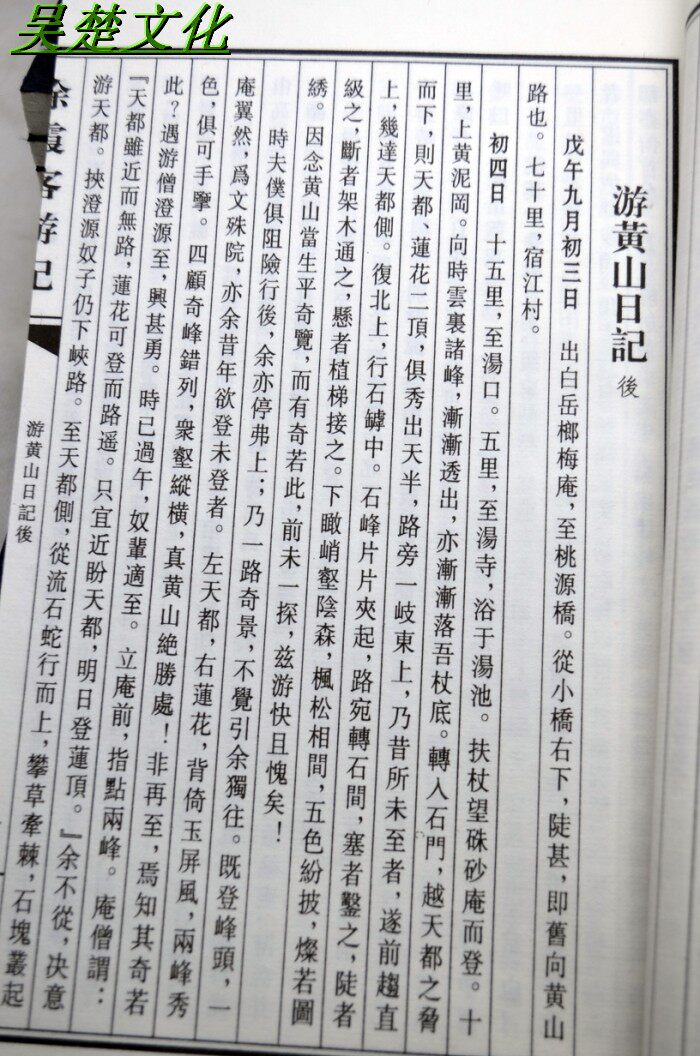 吴楚文化
游黄山日記 後
戊午九月初三日　出白岳榔梅庵，至桃源橋。從小橋右下，陡甚，即舊向黄山
路也。七十里，宿江村。
初四日　十五里，至湯口。五里，至湯寺，浴于湯池。扶杖望硃砂庵而登。十
里，上黄泥岡。向時雲裏諸峰，漸漸透出，亦漸漸落吾杖底。轉入石門，越天都之脅
而下，則天都、蓮花二頂，俱秀出天半，路旁一岐東上，乃昔所未至者，遂前趨直
上，幾達天都側。復北上，行石罅中。石峰片片夾起，路宛轉石間，塞者鑿之，陡者
級之，斷者架木通之，懸者植梯接之。下瞰峭壑陰森，楓松相間，五色紛披，燦若圖
綉。因念黄山當生平奇覽，而有奇若此，前未一探，兹游快且愧矣！
時夫僕俱阻險行後，余亦停弗上；乃一路奇景，不覺引余獨往。既登峰頭，一
庵翼然，爲文殊院，亦余昔年欲登未登者。左天都，右蓮花，背倚玉屏風，兩峰秀
色，俱可手擥。四顧奇峰錯列，衆壑縱横，真黄山絶勝處！非再至，焉知其奇若
此？遇游僧澄源至，興甚勇。時已過午，奴輩適至。立庵前，指點兩峰。庵僧謂：
『天都雖近而無路，蓮花可登而路遥。只宜近盼天都，明日登蓮頂。』余不從，决意
游天都。挾澄源奴子仍下峽路。至天都側，從流石蛇行而上，攀草牽棘，石塊叢起
徐霞客游记
游黄山日記後